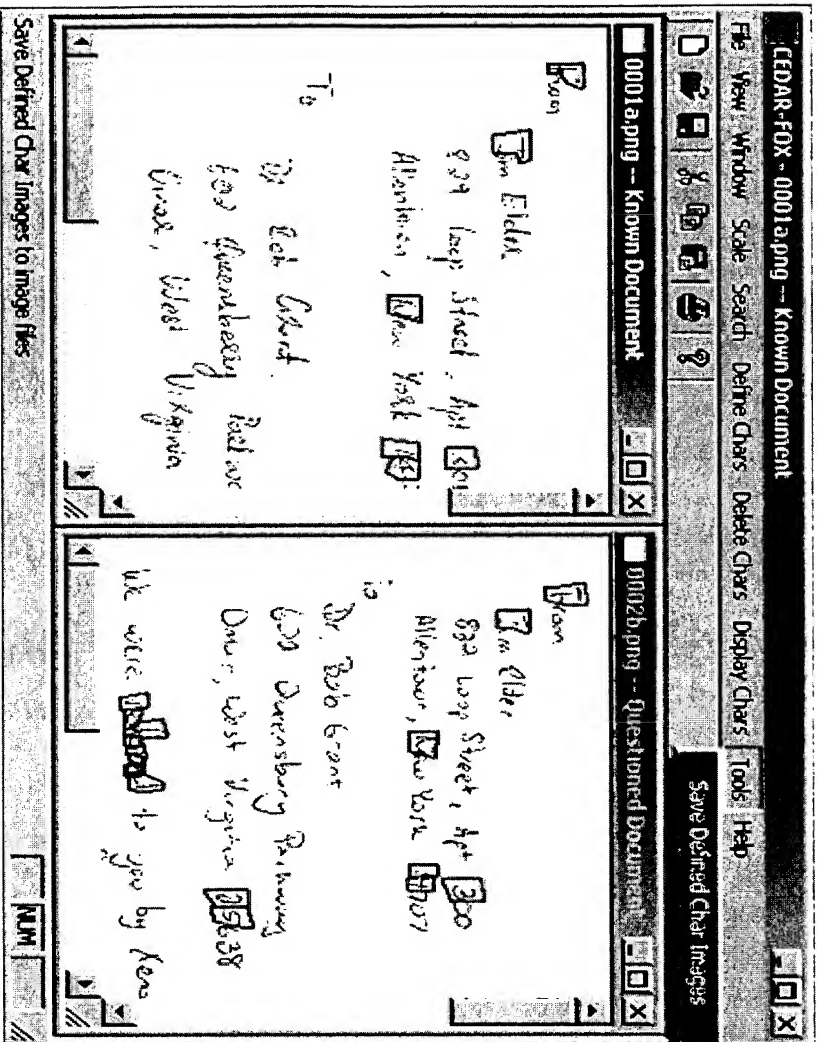 CEDAR-FOX - 0001a.png -- Known Document
File View Window Scale Search Define Chars Delete Chars Display Chars Tools Help
Save Defined Char Images
0001a.png -- Known Document
From
Jim Elder
829 Loop Street, Apt
Allentown, New York
To
Dr Bob Grant
602 Queensberry
Omar, West Virginia
0002b.png -- Questioned Document
From
Jim Elder
Loop Street, Apt 300
Allentown, New York 14707
to
Dr. Bob Grant
602 Queensbury Parkway
Omar, West Virginia 25638
We were to you by
Save Defined Char Images to image files
NUM